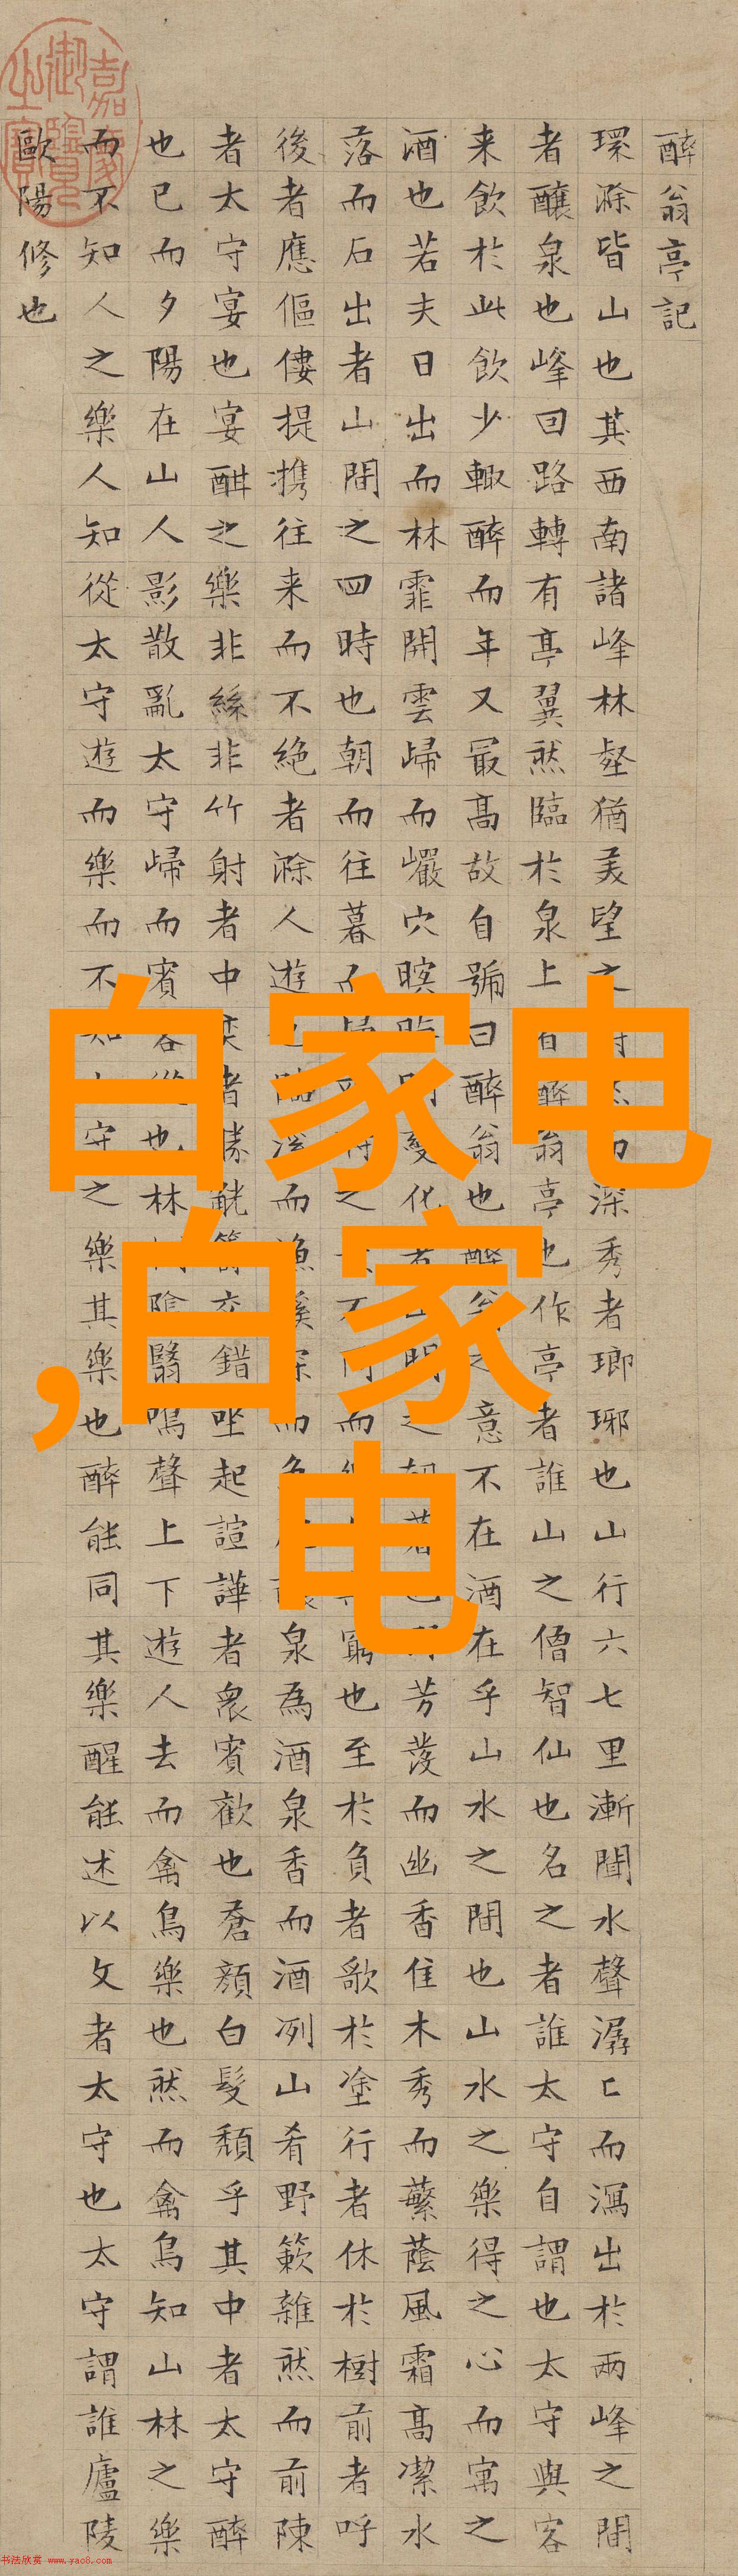 醉翁亭記
環滁皆山也其西南諸峰林壑猶美望之深秀者瑯琊也山行六七里漸聞水聲潺匕而瀉出於兩峰之間
者釀泉也峰回路轉有亭翼然臨於泉上有醉翁亭也作亭者誰山之僧智仙也名之者誰太守自謂也太守與客
来飲於此飲少輒醉而年又最高故自號曰醉翁也醉翁之意不在酒在乎山水之間也山水之樂得之心而寓之
酒也若夫日出而林霏開雲歸而巖穴暝晦明變化者山間之朝暮也野芳發而幽香佳木秀而蘩蔭風霜高潔水
落而石出者山間之四時也朝而往暮而歸之不同而窮也至於負者歌於塗行者休於樹前者呼
後者應傴僂提携往来而不絶者滁人遊也臨溪而漁溪深而魚泉為酒泉香而酒冽山肴野蔌雜然而前陳
者太守宴也宴酣之樂非絲非竹射者中奕者勝觥籌交錯坐起諠譁者衆賓歡也蒼顏白髮頹乎其中者太守醉
也已而夕陽在山人影散亂太守歸而賓客從也林間陰翳鳴聲上下遊人去而禽鳥樂也然而禽鳥知山林之樂
而不知人之樂人知從太守遊而樂而不知太守之樂其樂也醉能同其樂醒能述以文者太守也太守謂誰廬陵
歐陽修也
嘉慶御覽之寶
白家电
,白家
电
书法欣赏 www.yac8.com